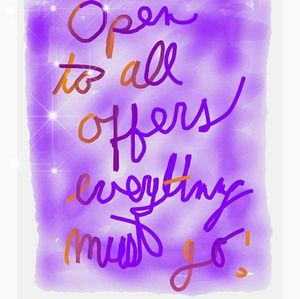 Open
to all
offers
everything
must go!